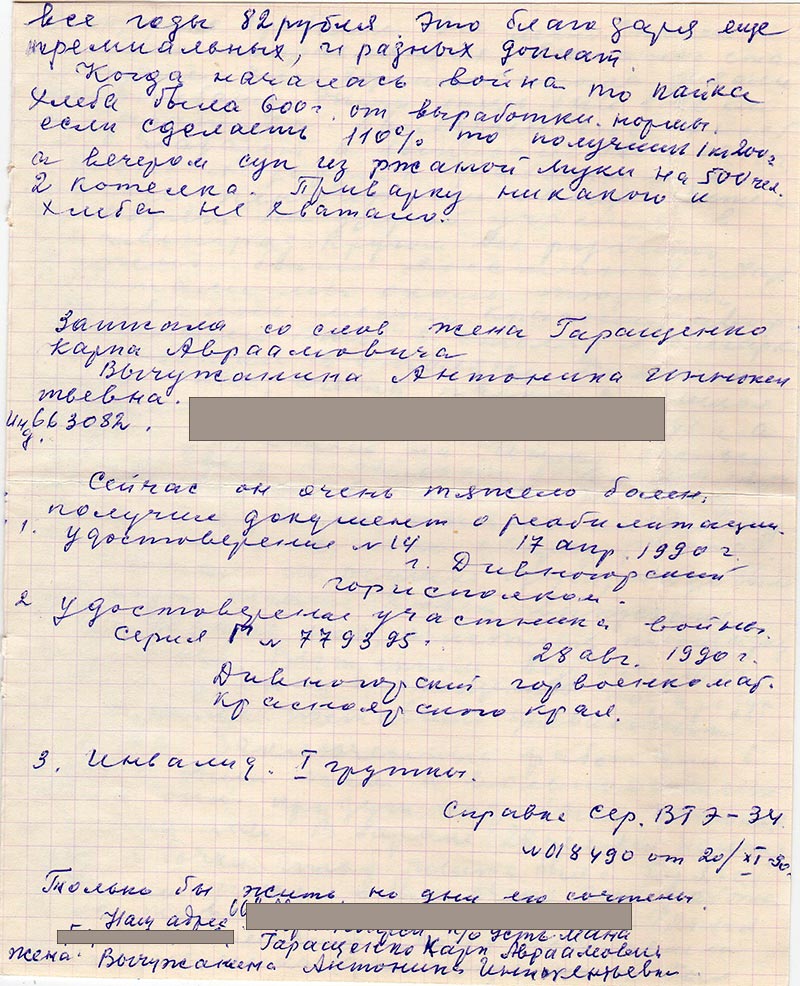 все годы 82 рубля. Это благодаря еще
премиальных, и разных доплат
Когда началась война то пайка
хлеба была 600г. от выработки нормы.
если сделаеть 110% то получишь 1 кг 200г
а вечером суп из ржаной муки на 500 чел.
2 котелка. Приварку никакого и
хлеба не хватало.
Записала со слов жена Гаращенко
Карпа Авраамовича
Вычужанина Антонина Иннокен
тьевна.
Инд. 663082.
Сейчас он очень тяжело болен,
получил документ о реабилитации.
1. удостоверение №14 17 апр. 1990 г.
г. Дивногорский
горисполком.
2 Удостоверение участника войны.
Серия Г № 779395. 28 авг. 1990 г.
Дивногорский горвоенкомат.
Красноярского края.
3. Инвалид. I группы.
Справка Сер. ВТЭ-34
№018490 от 20/XI-90.
Только бы жить но дни его сочтены.
Наш адрес
п/о Усть-Мана
Гаращенко Карп Авраамович
жена: Вычужанина Антонина Иннокентьевна